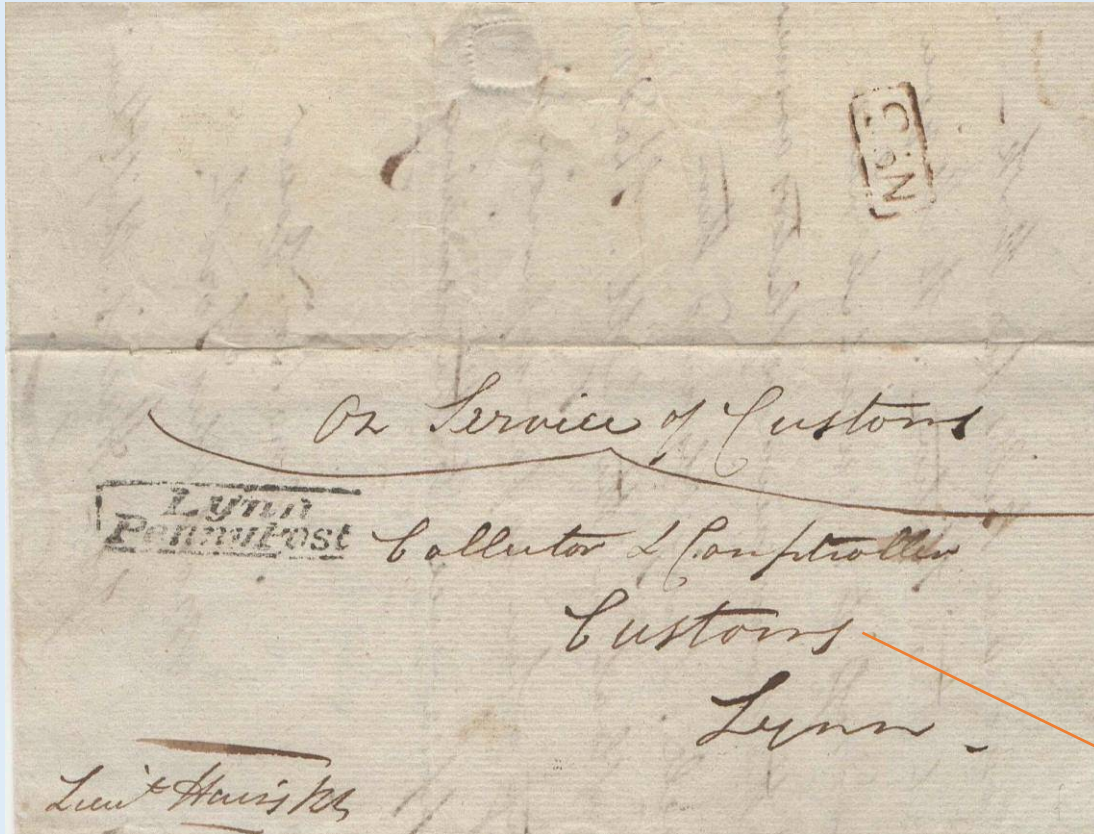 On Service of Customs
Lynn
Penny Post
Collector & Comptroller
Customs
Lynn
Lieut